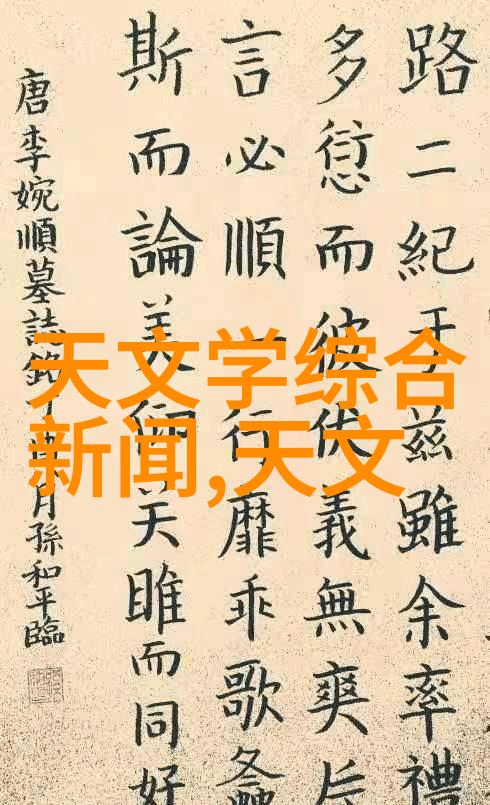 路二紀于兹雖余率禮
多愆而彼伏義無爽片
言必順一行靡乖歌
斯而論美关雎而同好
唐李婉順墓誌銘丁月孫和平臨
天文学综合
新闻,天文